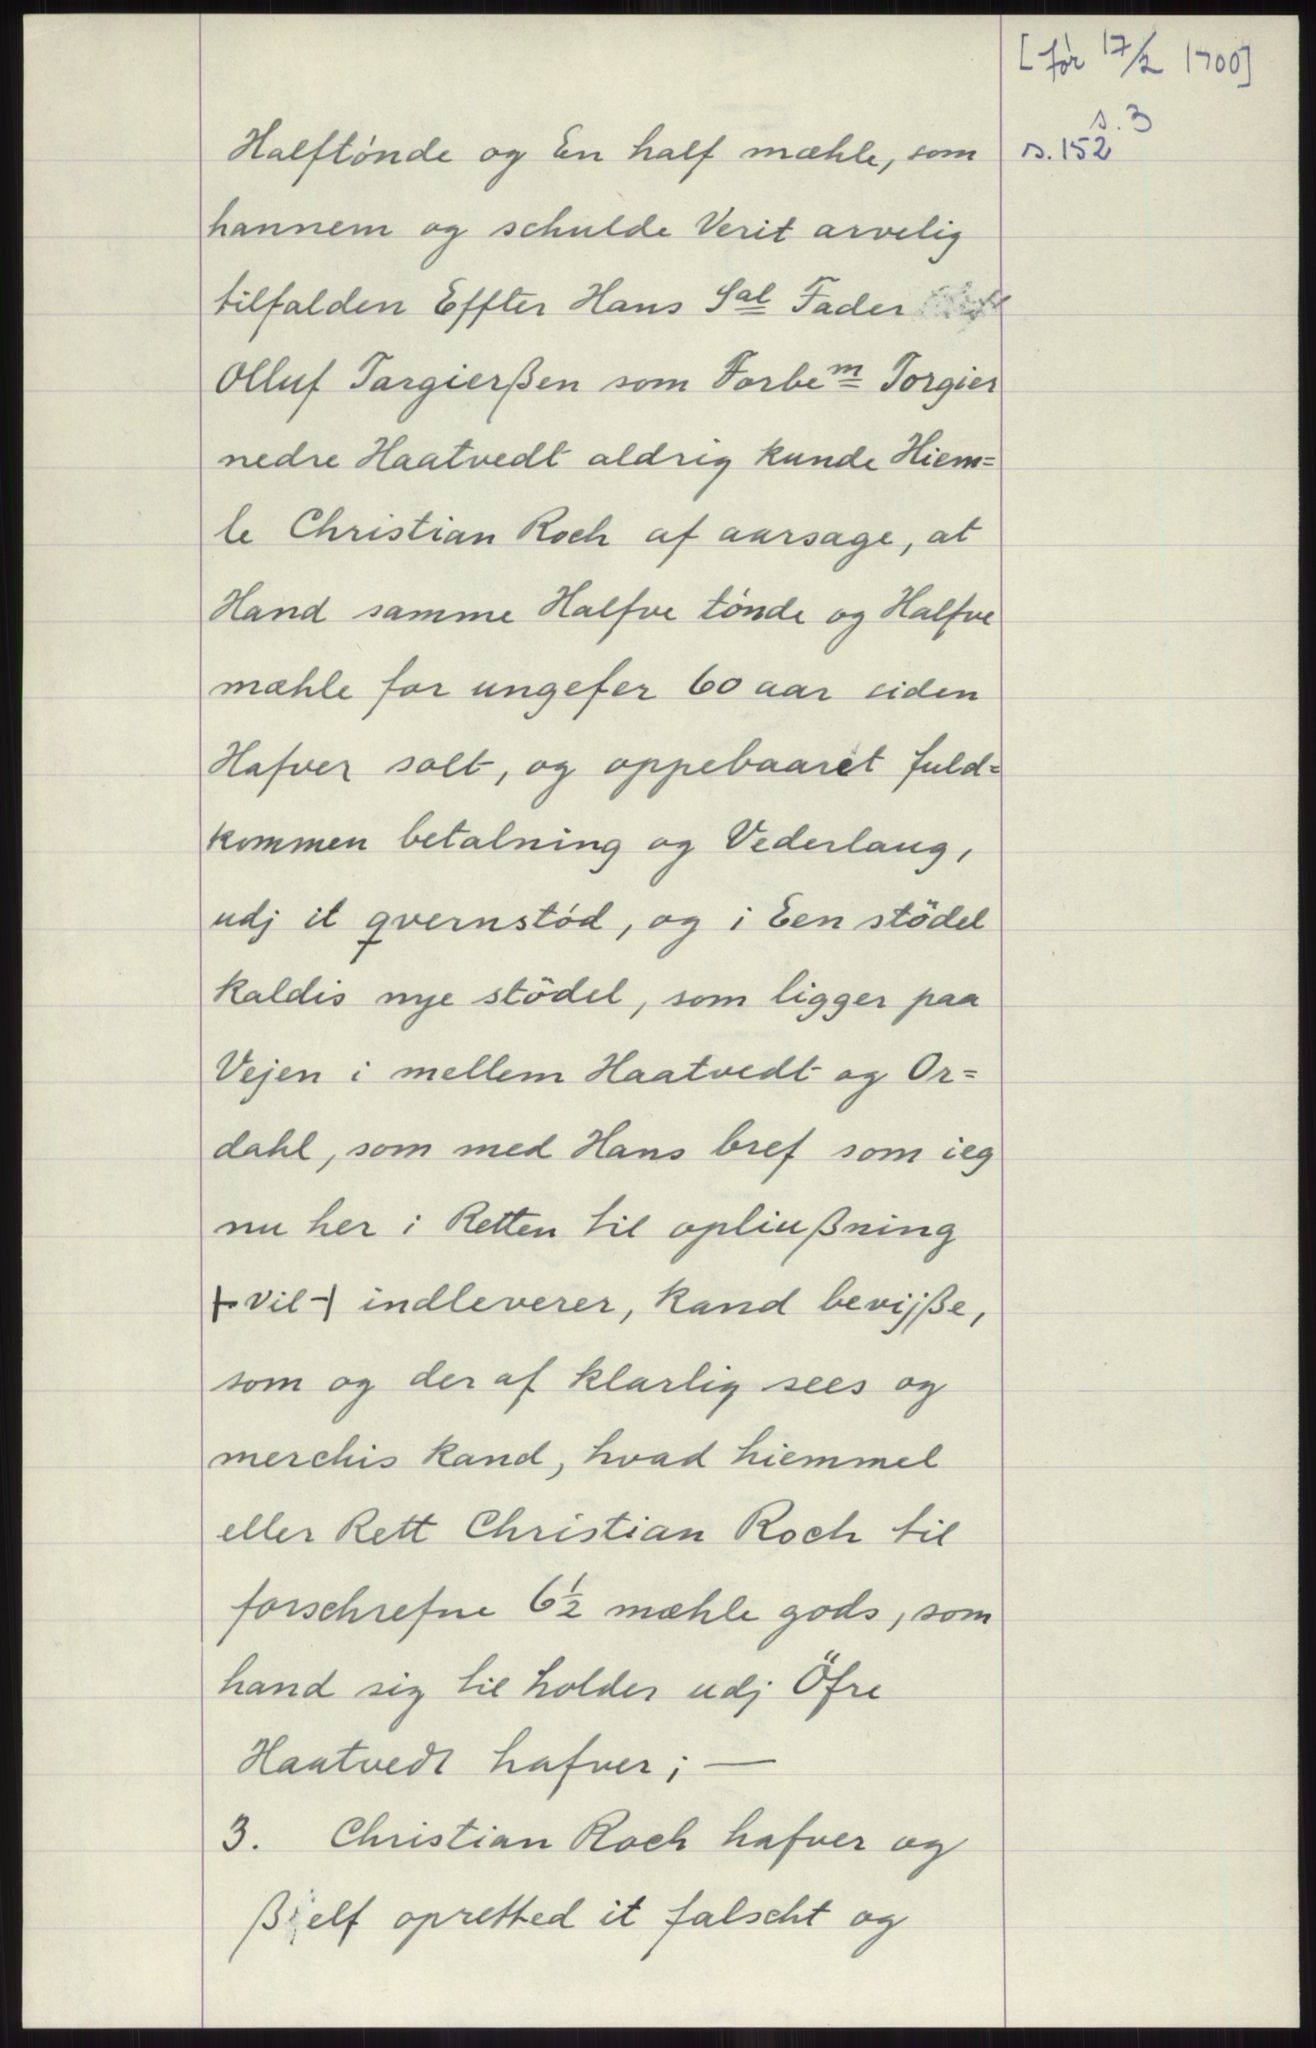 [før 17/2 1700]
s. 3
s. 152
Halftónde og En half mæhle, som
hannem og schulde Verit arvelig
tilfalden Effter Hans Sal Fader
Olluf Targierßen som Forbem Torgier
nedre Haatvedt aldrig kunde Hiem=
le Christian Roch af aarsage, at
Hand samme Halfve tónde og Halfve
mæhle for ungefer 60 aar siden
Hafver solt, og oppebaaret fuld=
kommen betalning og Vederlaug,
udj it qvernstód, og i Een stödel
kaldis nye stödel, som ligger paa
Vejen i mellem Haatvedt og Or=
dahl, som med Hans bref som ieg
nu her i Retten til opliußning
⟊vil⟊ indleverer, kand bevijße,
som og der af klarlig sees og
merchis kand, hvad hiemmel
eller Rett Christian Roch til
forschrefne 6½ mæhle gods, som
hand sig til holder udj Öfre
Haatvedt hafver; —
3. Christian Roch hafver og
ßielf opretted it falscht og